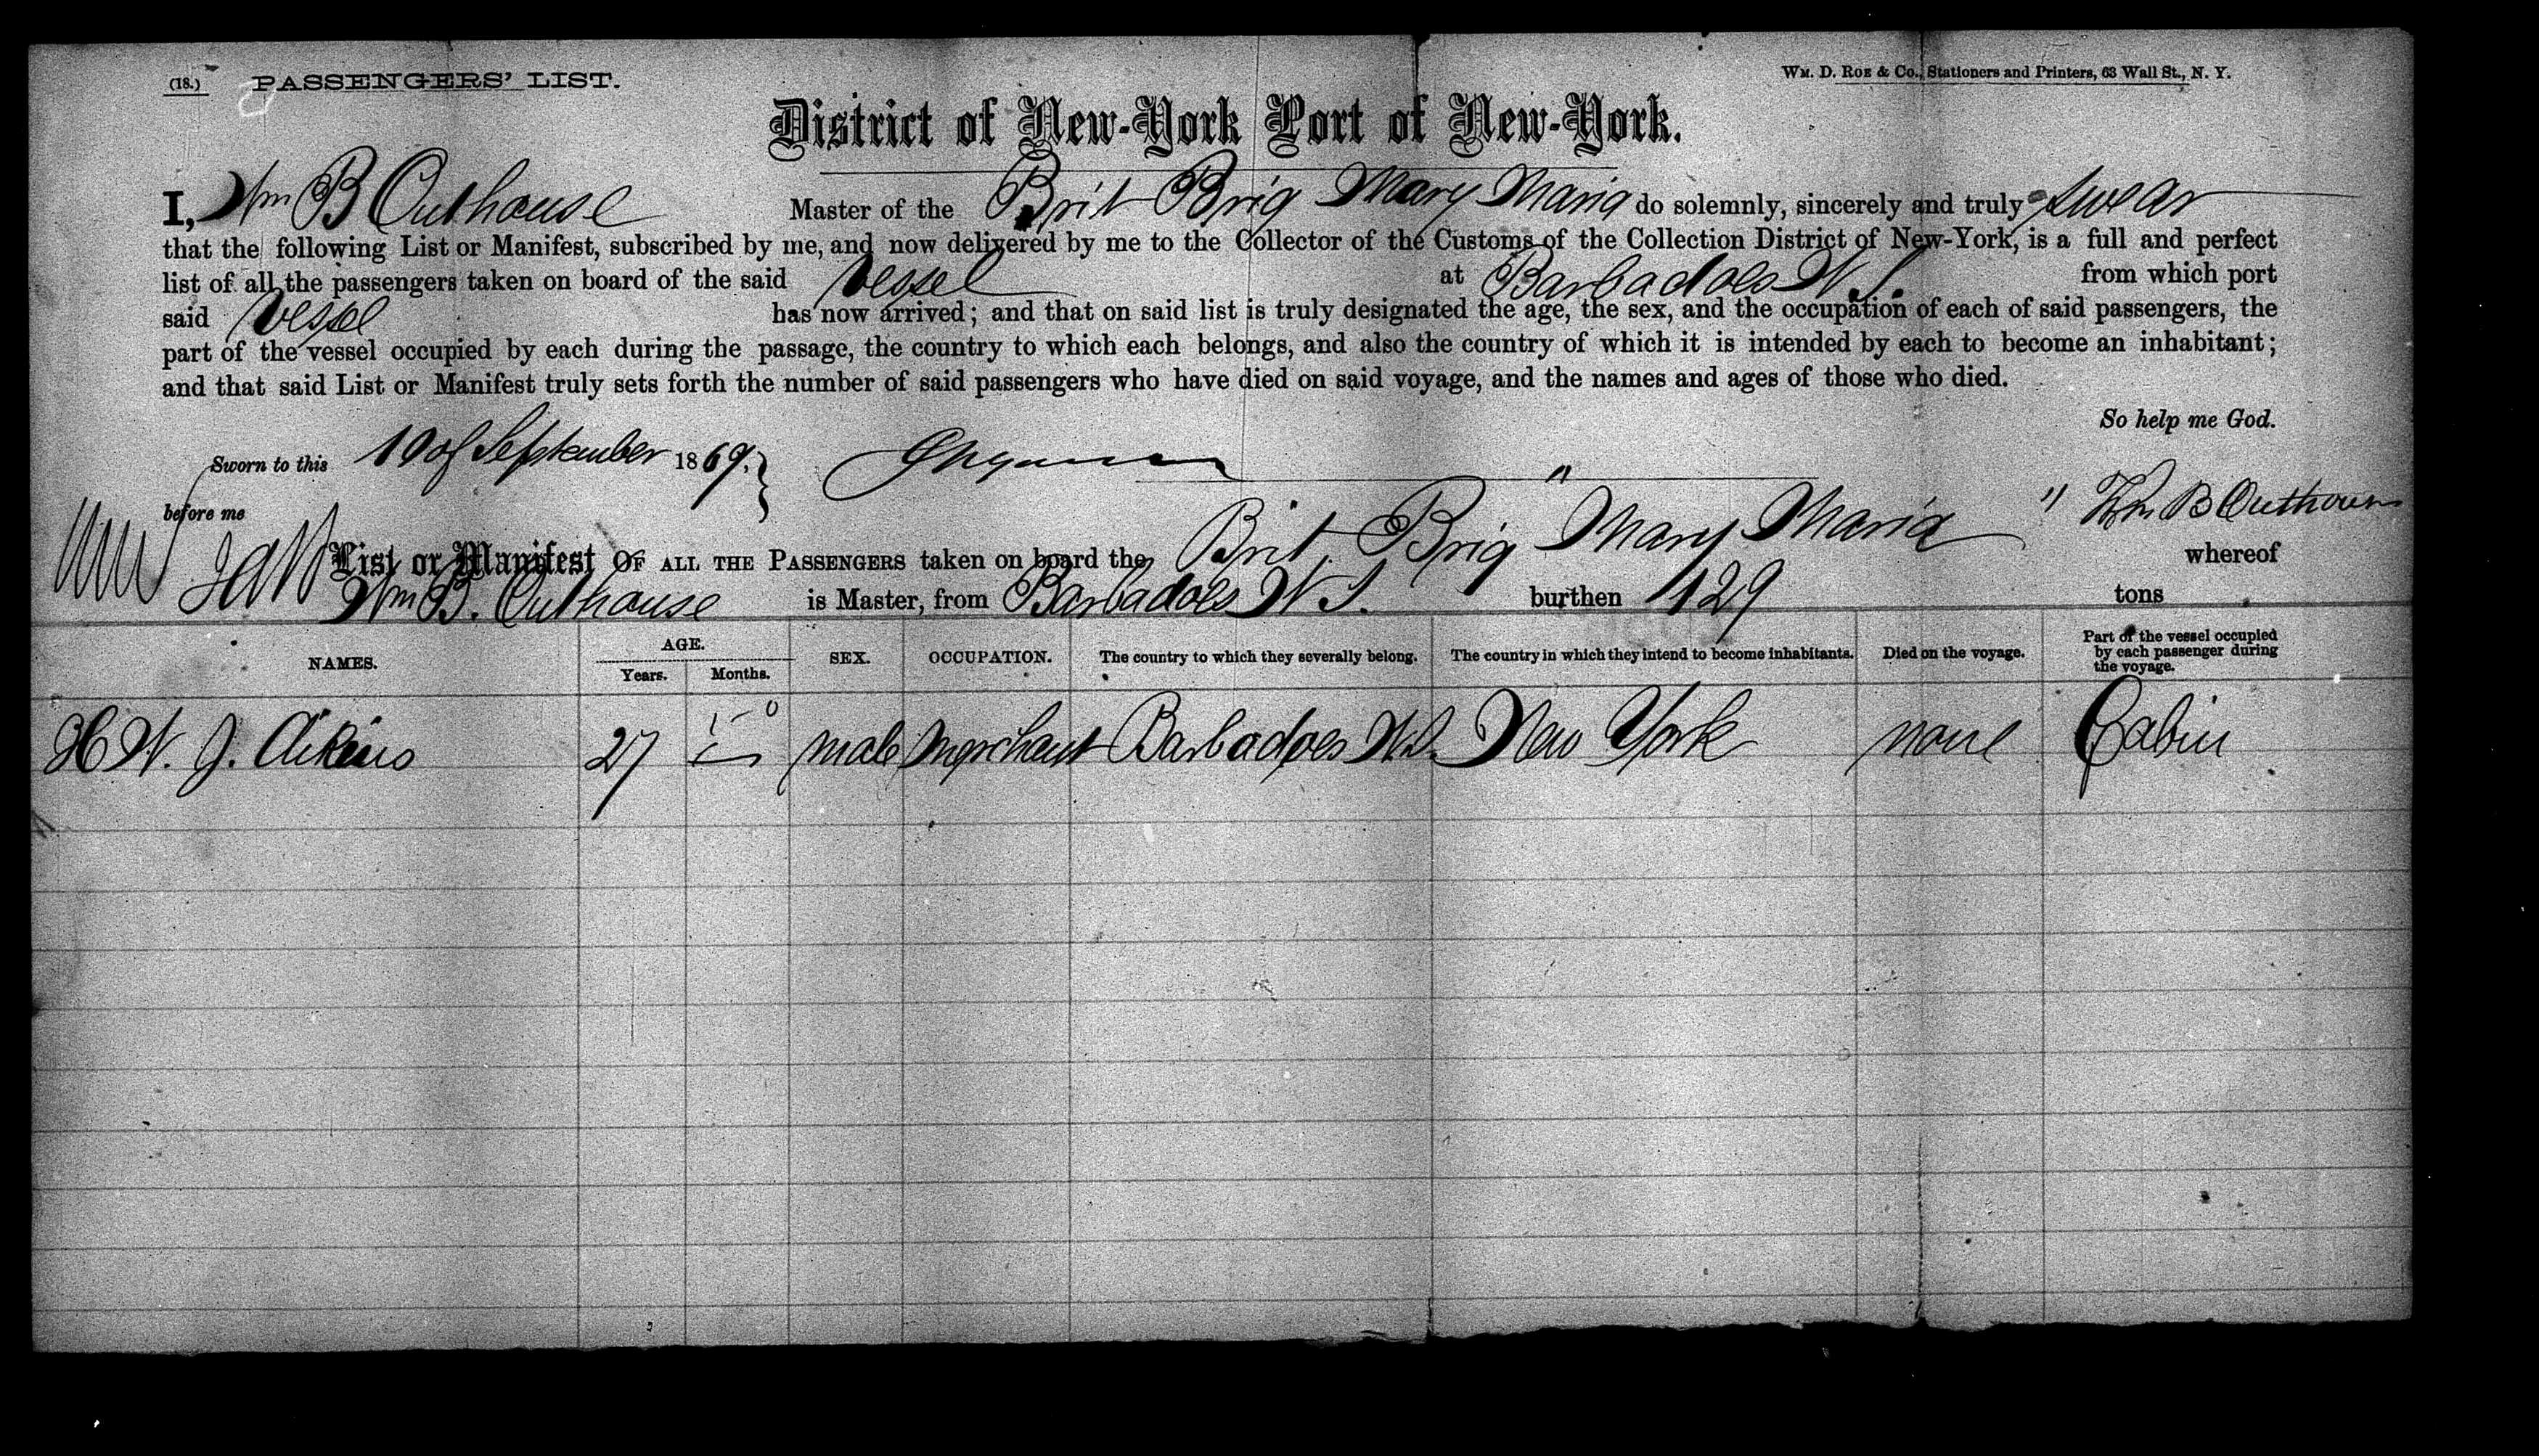 (18.) PASSENGERS' LIST.
WM. D. ROE & CO., Stationers and Printers, 63 Wall St., N. Y.
District of New-York Port of New-York.
I, Wm B Outhouse Master of the Brit Brig Mary Maria do solemnly, sincerely and truly swear
that the following List or Manifest, subscribed by me, and now delivered by me to the Collector of the Customs of the Collection District of New-York, is a full and perfect
list of all the passengers taken on board of the said Vessel at Barbadoes W I. from which port
said Vessel has now arrived; and that on said list is truly designated the age, the sex, and the occupation of each of said passengers, the
part of the vessel occupied by each during the passage, the country to which each belongs, and also the country of which it is intended by each to become an inhabitant;
and that said List or Manifest truly sets forth the number of said passengers who have died on said voyage, and the names and ages of those who died.
So help me God.
Sworn to this 10 of September 1869.
before me
Wm B Outhouse
List or Manifest OF ALL THE PASSENGERS taken on board the Brit. Brig "Mary Maria" whereof
Wm B. Outhouse is Master, from Barbadoes W I. burthen 129 tons
NAMES. AGE. Years. Months. SEX. OCCUPATION. The country to which they severally belong. The country in which they intend to become inhabitants. Died on the voyage. Part of the vessel occupied by each passenger during the voyage.
H W. J. Aikins 27 male Merchant Barbadoes W.I. New York none Cabin